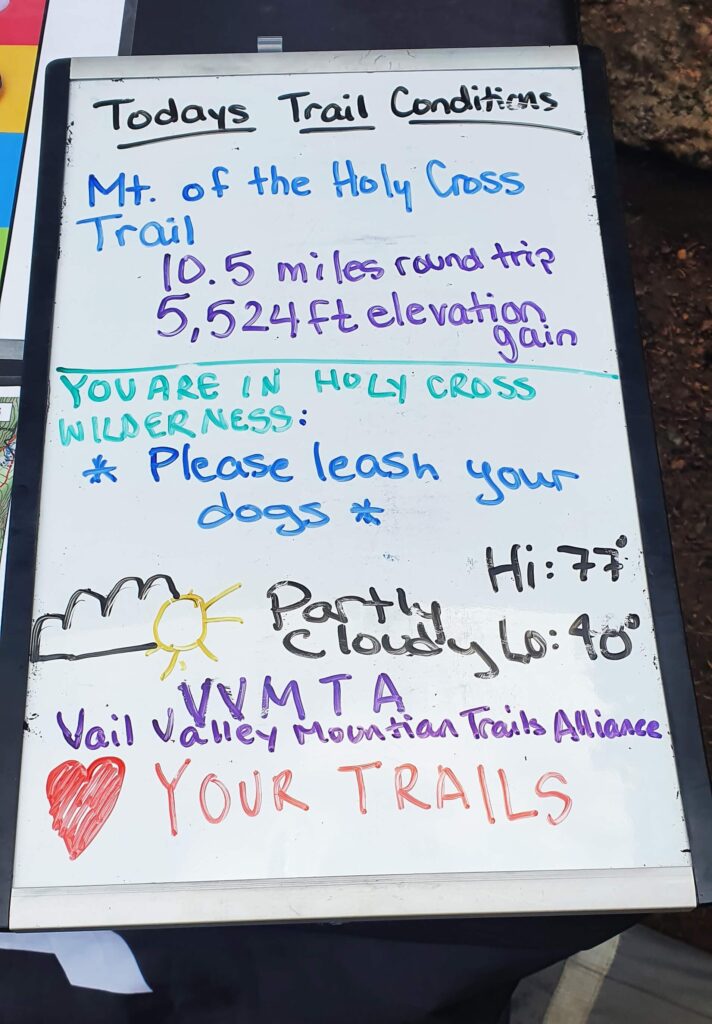 Todays Trail Conditions
Mt. of the Holy Cross
Trail
10.5 miles round trip
5,524ft elevation
gain
YOU ARE IN HOLY CROSS
WILDERNESS:
* Please leash your
dogs *
Hi: 77°
Partly
Cloudy Lo: 40°
VVMTA
Vail Valley Mountian Trails Alliance
♥ YOUR TRAILS